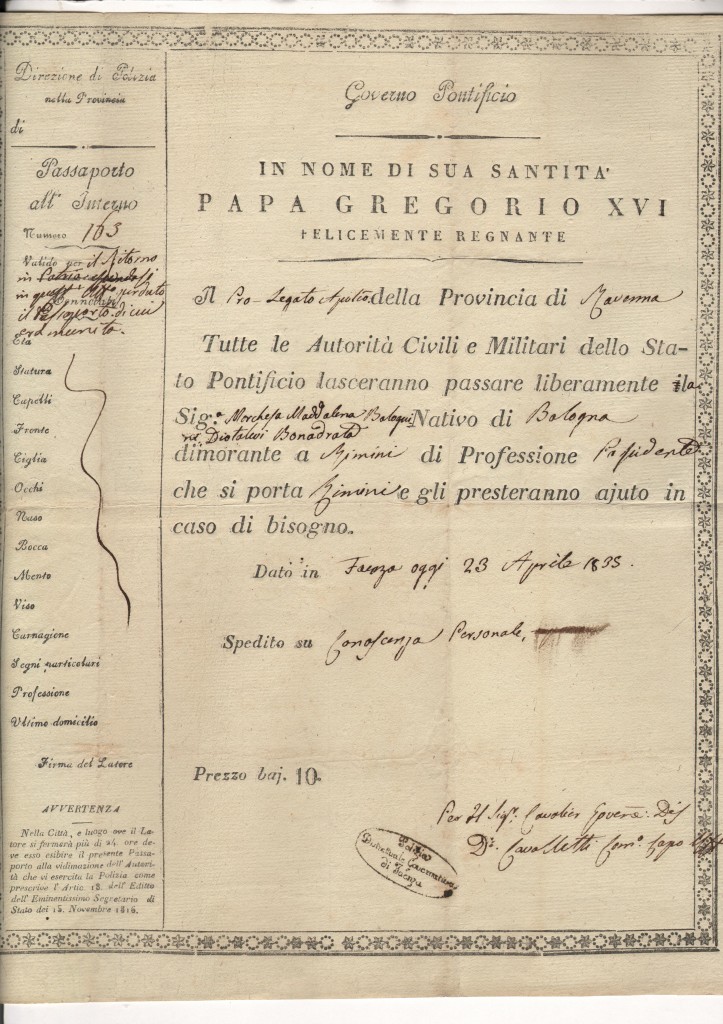 Direzione di Polizia
nella Provincia
di
Passaporto
all' Interno
Numero 163
Valido per il Ritorno
in Patria essendosi
in quest' perduto
Connotati
il Passaporto di cui
era munito.
Età
Statura
Capelli
Fronte
Ciglia
Occhi
Naso
Bocca
Mento
Viso
Carnagione
Segni particolari
Professione
Ultimo domicilio
Firma del Latore
AVVERTENZA
Nella Città, e luogo ove il La-
tore si fermarà più di 24. ore de-
ve esso esibire il presente Passa-
porto alla vidimazione dell' Autori-
tà che vi esercita la Polizia come
prescrive l' Artic. 12. dell' Editto
dell' Eminentissimo Segretario di
Stato dei 15. Novembre 1816.
Governo Pontificio
IN NOME DI SUA SANTITA'
PAPA GREGORIO XVI
FELICEMENTE REGNANTE
Il Pro-Legato Aplico. della Provincia di Ravenna
Tutte le Autorità Civili e Militari dello Sta-
to Pontificio lasceranno passare liberamente il la
Sig.a Marchesa Maddalena Bolognini Nativo di Bologna
Diotalevi Bonadrata
dimorante a Rimini di Professione Possidente
che si porta Rimini e gli presteranno ajuto in
caso di bisogno.
Dato in Faenza oggi 23 Aprile 1835.
Spedito su Conoscenza Personale,
Prezzo baj. 10.
Per Il Sigr. Cavalier Govere. Dis
Dr. Cavalletti Com.o Capo
Polizia
Governativa
di Faenza